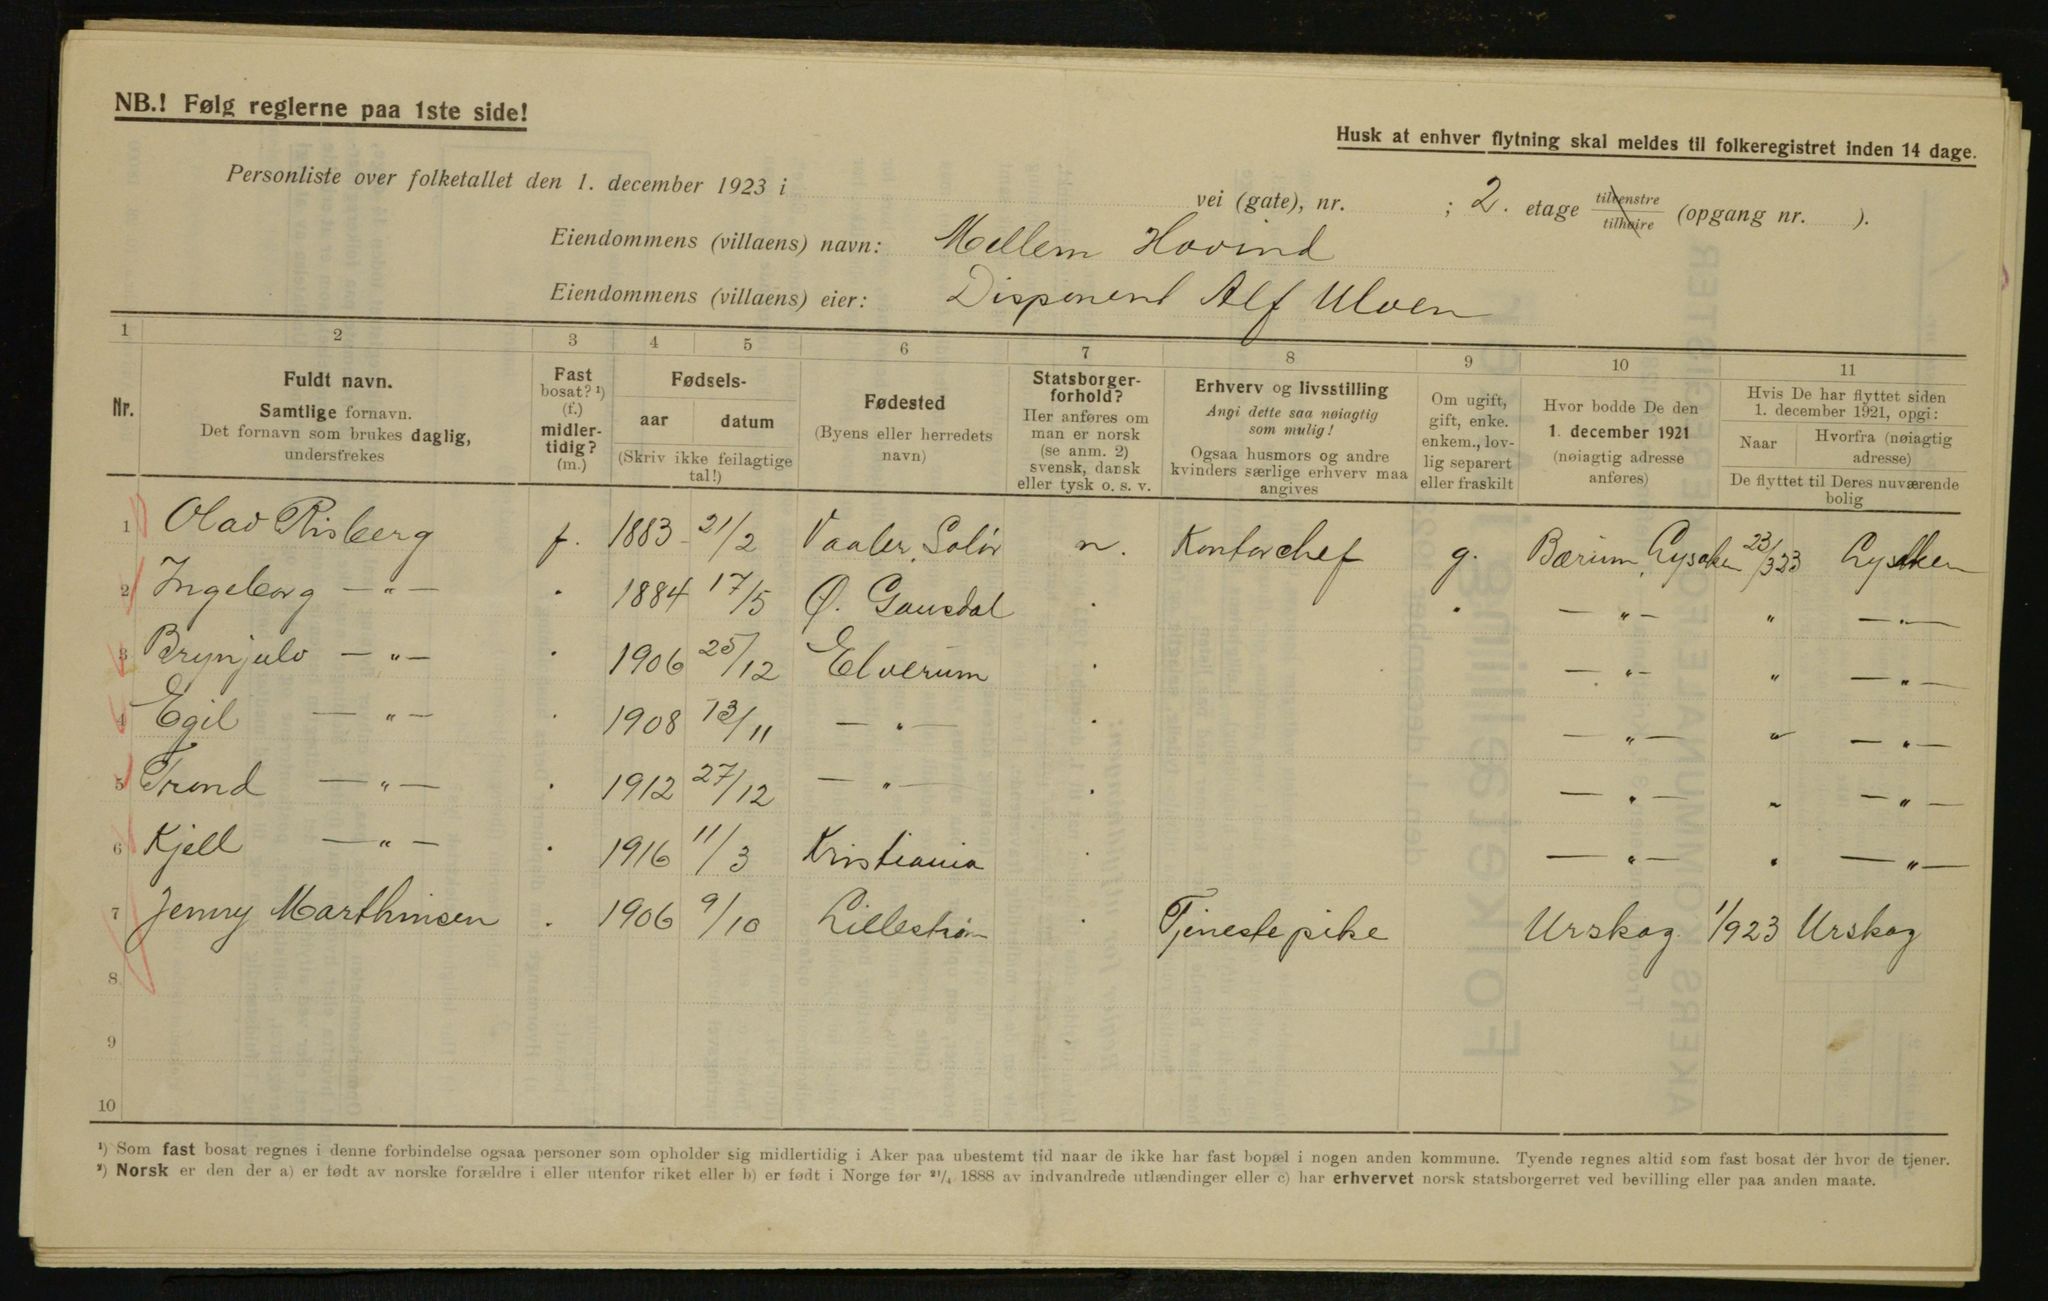 NB.! Følg reglerne paa 1ste side!
Husk at enhver flytning skal meldes til folkeregistret inden 14 dage.
Personliste over folketallet den 1. december 1923 i vei (gate), nr. ; 2. etage tilvenstre tilhøire (opgang nr. ).
Eiendommens (villaens) navn: Mellem Hovind
Eiendommens (villaens) eier: Disponent Alf Ulven
1 2 3 4 5 6 7 8 9 10 11
Nr.
Fuldt navn.
Samtlige fornavn.
Det fornavn som brukes daglig,
understrekes
Fast
bosat? ¹)
(f.)
midler-
tidig?
(m.)
Fødsels-
aar datum
(Skriv ikke feilagtige
tal!)
Fødested
(Byens eller herredets
navn)
Statsborger-
forhold?
Her anføres om
man er norsk
(se anm. 2)
svensk, dansk
eller tysk o. s. v.
Erhverv og livsstilling
Angi dette saa nøiagtig
som mulig!
Ogsaa husmors og andre
kvinders særlige erhverv maa
angives
Om ugift,
gift, enke.
enkem., lov-
lig separert
eller fraskilt
Hvor bodde De den
1. december 1921
(nøiagtig adresse
anføres)
Hvis De har flyttet siden
1. december 1921, opgi:
Naar Hvorfra (nøiagtig
adresse)
De flyttet til Deres nuværende
bolig
1 Olav Risberg f. 1883 21/2 Vaaler, Solør n. Kontorchef g. Bærum, Lysaker 23/3 23 Lysaker
2 Ingeborg — " — " 1884 17/5 Ø. Gausdal " " — " — " — " —
3 Brynjulv — " — " 1906 25/12 Elverum " — " — " — " —
4 Egil — " — " 1908 13/11 — " — " — " — " — " —
5 Trond — " — " 1912 27/12 — " — " — " — " — " —
6 Kjell — " — " 1916 11/3 Kristiania " — " — " — " —
7 Jenny Marthinsen " 1906 9/10 Lillestrøm " Tjenestepike Urskog 1/9 23 Urskog
8
9
10
¹) Som fast bosat regnes i denne forbindelse ogsaa personer som opholder sig midlertidig i Aker paa ubestemt tid naar de ikke har fast bopæl i nogen anden kommune. Tyende regnes altid som fast bosat der hvor de tjener.
²) Norsk er den der a) er født av norske forældre i eller utenfor riket eller b) er født i Norge før ²¹/₄ 1888 av indvandrede utlændinger eller c) har erhvervet norsk statsborgerret ved bevilling eller paa anden maate.